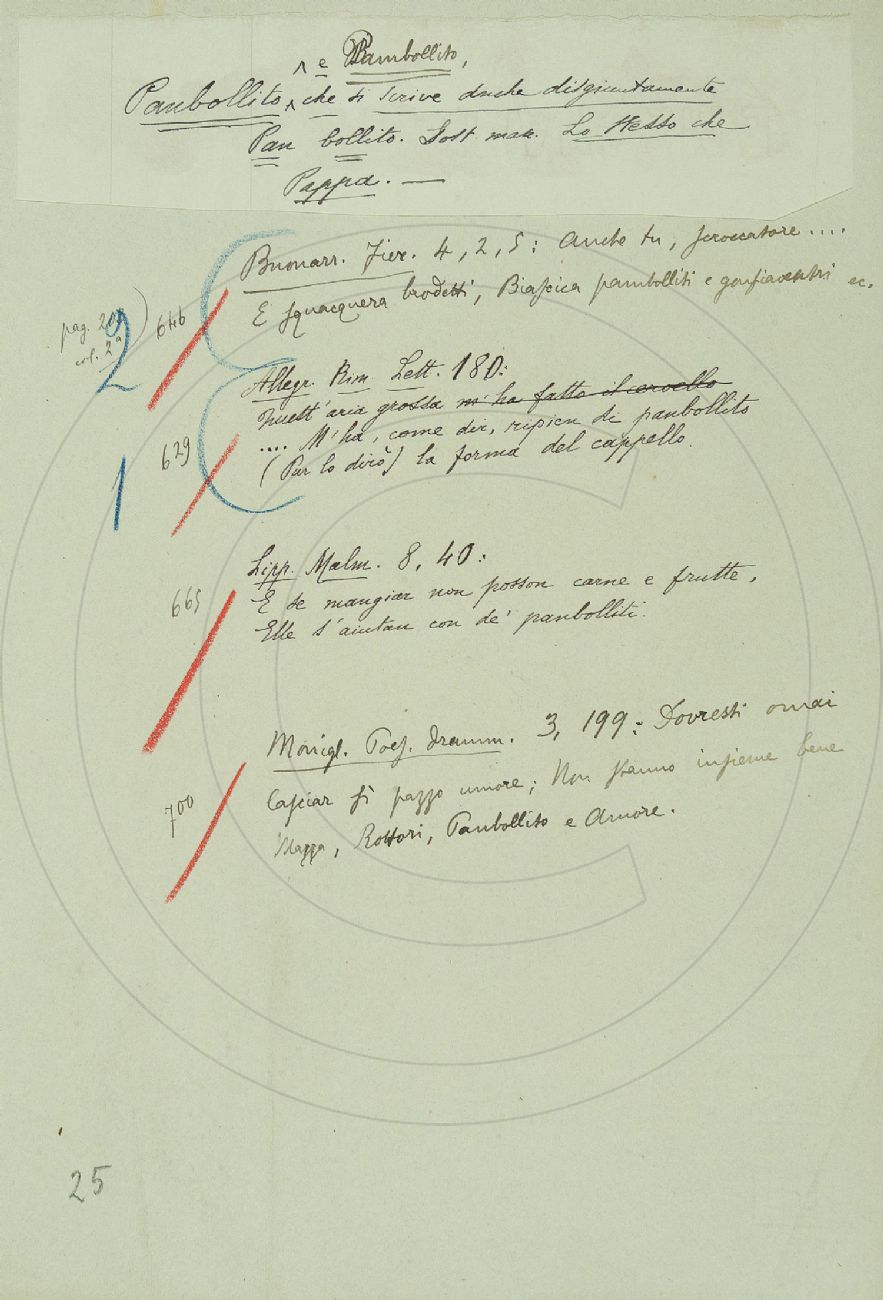 ^ e Pambollito,
Panbollito ^ che si scrive anche disgiuntamente
Pan bollito. Sost. mas. Lo stesso che
Pappa. —
Buonarr. Fier. 4, 2, 5: Anche tu, scroccatore....
E squacquera brodetti, Biascica pambolliti e gonfiaventri ec.
pag.
col. 2ª
646
2
Allegr. Rim. Lett. 180:
Quest'aria grossa m'ha fatto il cervello
.... M'ha, come dir, ripien di panbollito
(Pur lo dirò) la forma del cappello.
629
1
Lipp. Malm. 8, 40:
E se mangiar non posson carne e frutte,
Elle s'aiutan con de' panbolliti.
665
Monigl. Poes. dramm. 3, 199: Dovresti omai
Lasciar sì pazzo umore; Non stanno insieme bene
Mazza, Rottori, Panbollito e Amore.
700
25
C